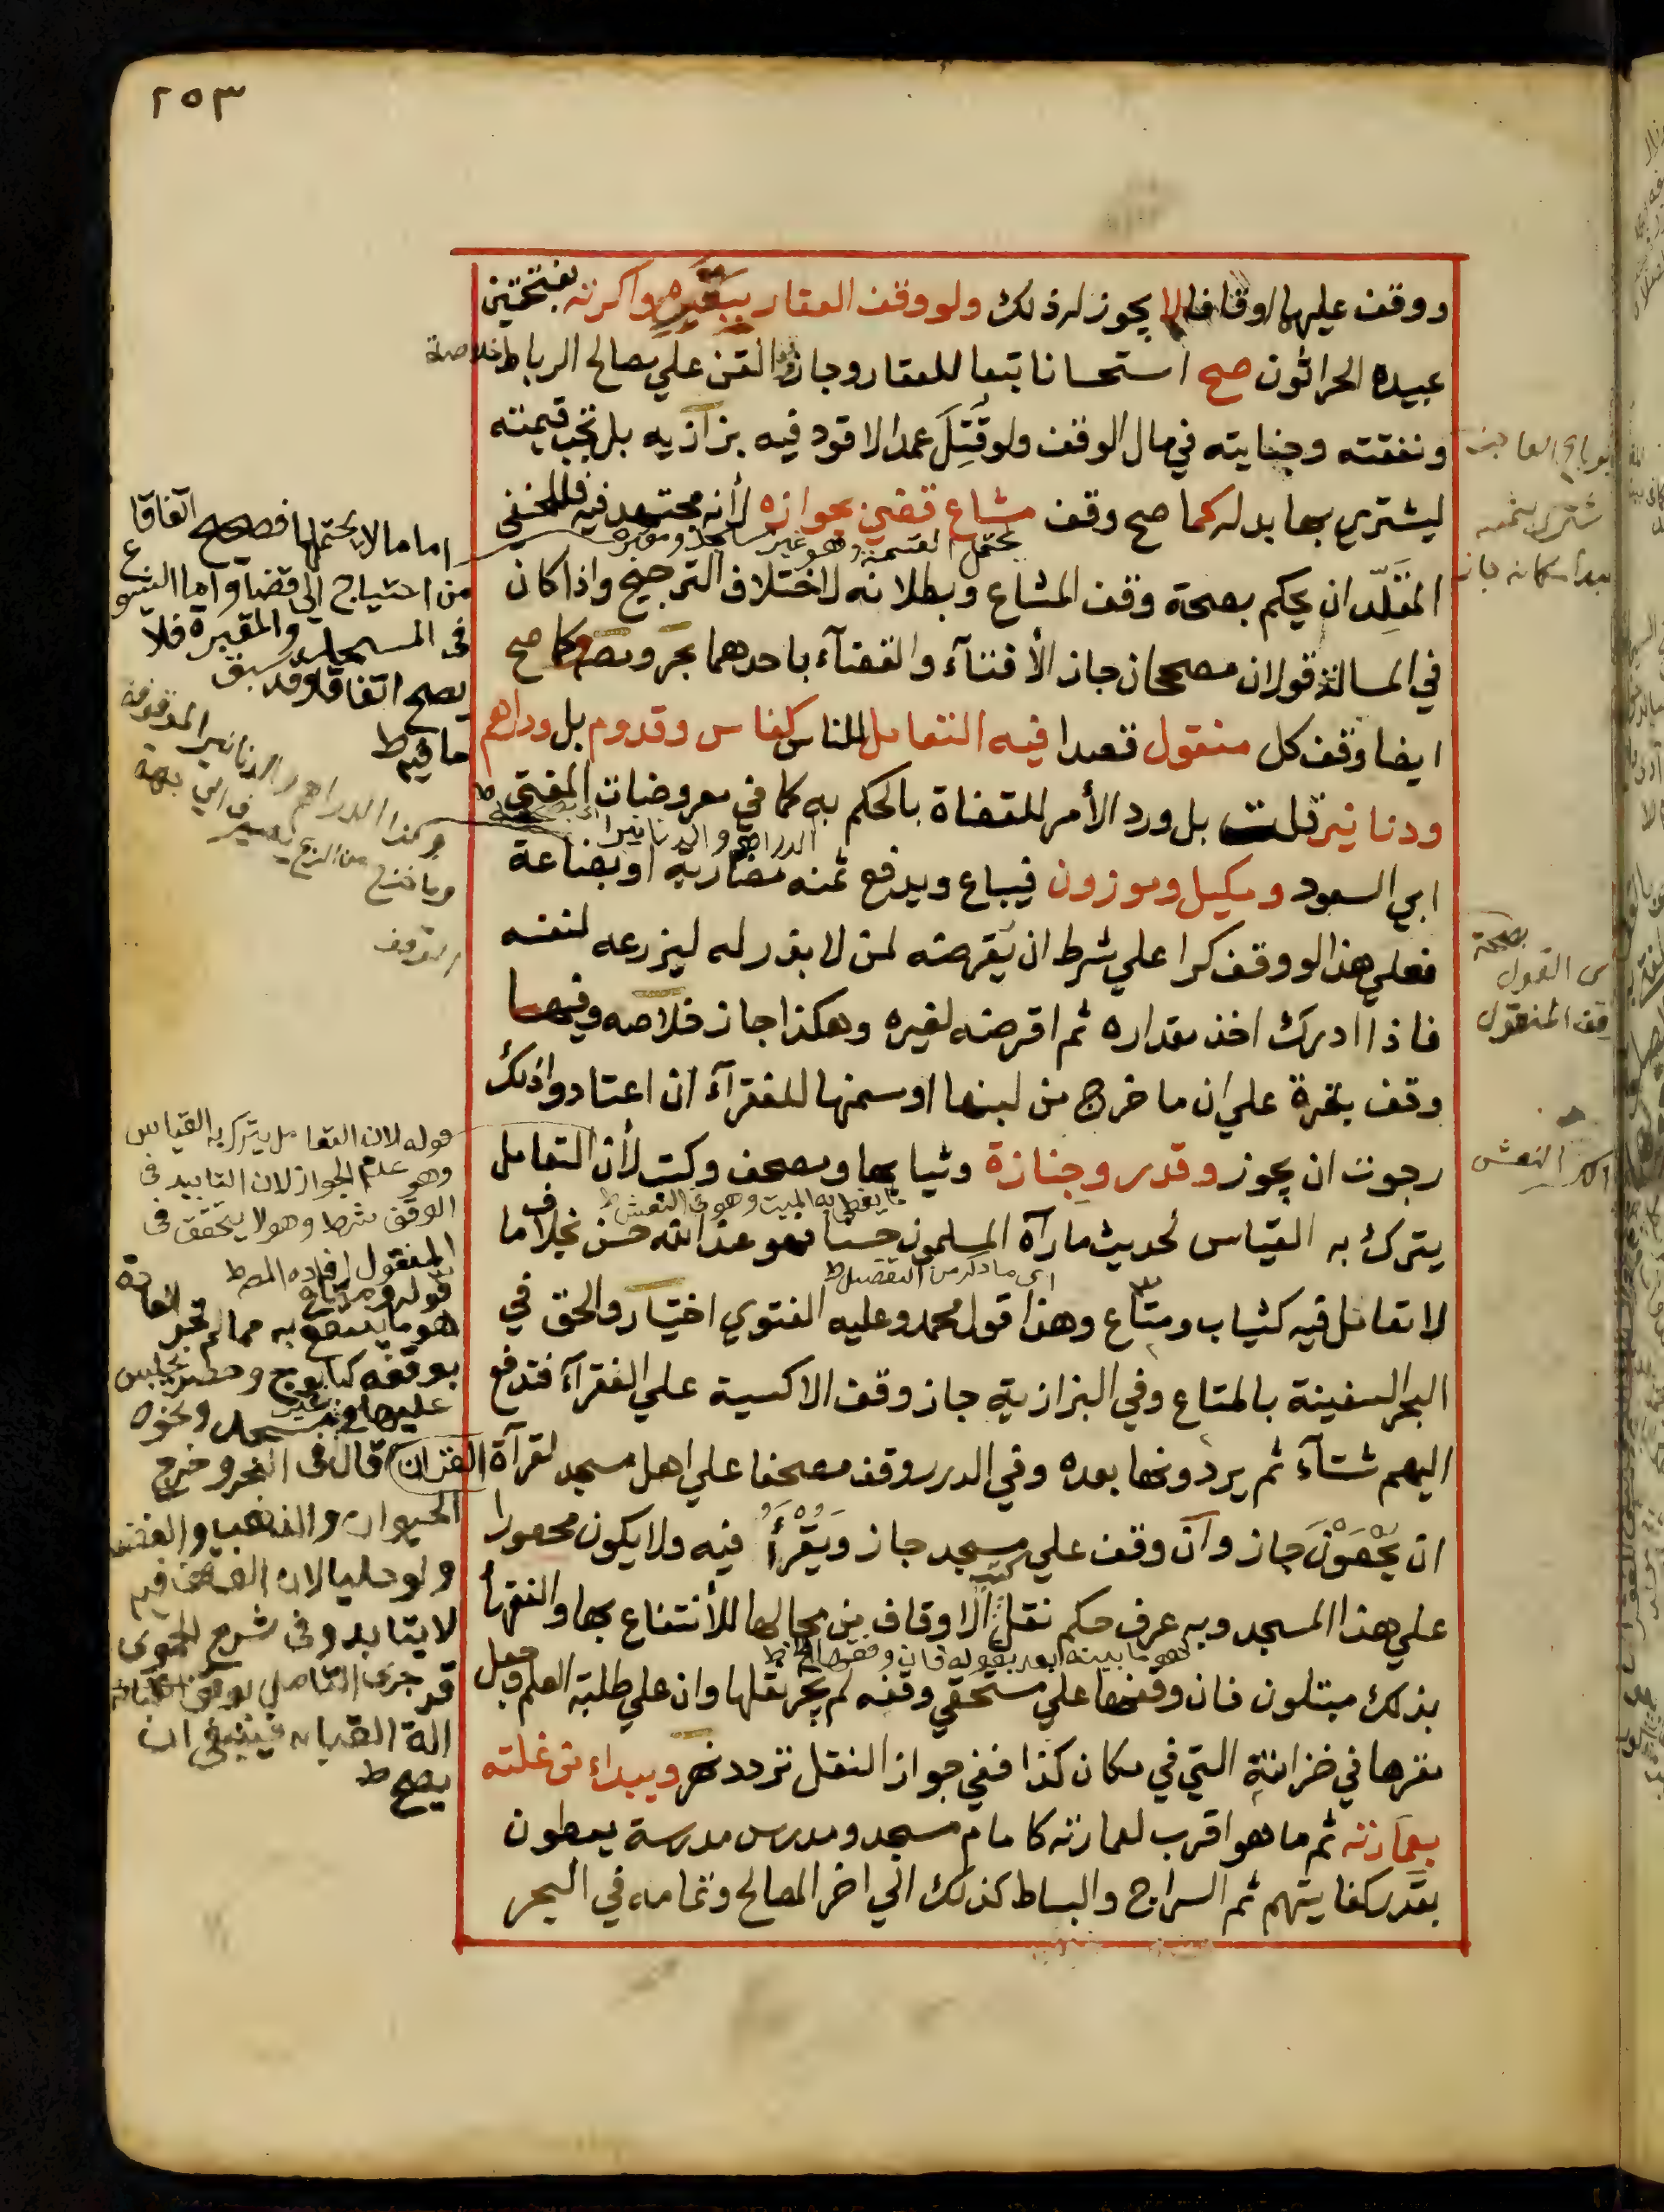 ٢٥٣
ووقف عليها اوقافا لا يجوز له ذلك ولو وقف العقار ببقره واكرته بفتحتين
عبيده الحراثون صح استحسانا تبعا للعقار وجاز وقف القن علي مصالح الرباط خلاصة
ونفقته وجنايته في مال الوقف ولو قُتِلَ عمدا لا قود فيه بزازيه بل تجب قيمته
ليشتري بها بدله كما صح وقف مشاع قضي بجوازه لأنه مجتهد فيه فللحنفي
يحتمل القسمة وهو غير مسجد ومقبره
المقلِّد ان يحكم بصحة وقف المشاع وبطلانه لاختلاف الترجيح واذا كان
في المسالة قولان مصححان جاز الأفتآء والقضآء باحدهما بحر ومصه وكما صح
ايضا وقف كل منقول قصدا فيه التعامل للناس كفاس وقدوم بل ودراهم
ودنانير قلت بل ورد الأمر للقضاة بالحكم به كما في معروضات المفتي
الدراهم والدنانير
ابي السعود ومكيل وموزون فيباع ويدفع ثمنه مضاربة او بضاعة
فعلي هذا لو وقف كرا علي شرط ان يقرضه لمن لا بذر له ليزرعه لنفسه
فاذا ادرك اخذ مقداره ثم اقرضه لغيره وهكذا جاز خلاصه وفيها
وقف بقرة علي ان ما خرج من لبنها او سمنها للفقرآء ان اعتادوا ذلك
رجوت ان يجوز وقدر وجنازة وثيابها ومصحف وكتب لأن التعامل
ما يغطي به الميت وهو في النعش ط
يترك به القياس لحديث مارآه المسلمون حسنا فهو عند الله حسن بخلاف ما
اي ما ذكر من التفصيل ط
لا تعامل فيه كثياب ومتاع وهذا قول محمد وعليه الفتوي اختيار والحق في
البحر السفينة بالمتاع وفي البزازية جاز وقف الاكسية علي الفقرآء فتدفع
اليهم شتآء ثم يردونها بعده وفي الدرر وقف مصحفا علي اهل مسجد لقرآة القران
ان يُحْصَوْنَ جاز وان وقف علي مسجد جاز ويُقْرَأُ فيه ولا يكون محصورا
علي هذا المسجد وبه عرف حكم نقل كتب الاوقاف من محالها للأنتفاع بها والفقهأ
هو ما بينه بعد بقوله فان وقفها الخ ط
بذلك مبتلون فان وقفها علي مستحقي وقفه لم يجز نقلها وان علي طلبة العلم وجعل
مقرها في خزانته التي في مكان كذا ففي جواز النقل تردد نهر ويبداء من غلته
بعمارته ثم ما هو اقرب لعمارته كامام مسجد ومدرس مدرسة يعطون
بقدر كفايتهم ثم السراج والبساط كذلك الي اخر المصالح وتمامه في البحر
اما ما لا يحتملها فصحيح اتفاقا
من احتياج الي قضا واما الشيوع
في المسجد والمقبرة فلا
يصح اتفاقا وقد سبق
ما فيه ط
وكذا الدراهم والدنانير الموقوفة
وما خرج من الربح يصرف الي جهة
الوقف
قوله لان التعامل يترك به القياس
وهو عدم الجواز لان التابيد في
الوقف شرط وهو لا يتحقق في
المنقول افاده المص ط
قوله ومتاع
هو ما ينتفع به مما لم تجر العادة
بوقفه
عليها في غير مسجد ونحوه
قال في النهر وخرج
الحيوان والذهب والفضة
ولو حليا لان الوقف فيه
لا يتابد وفي شرح الحموي
قد جري التعامل بوقف
الة القبان فينبغي ان
يصح ط
بصحة
القول
وقف المنقول
النعش